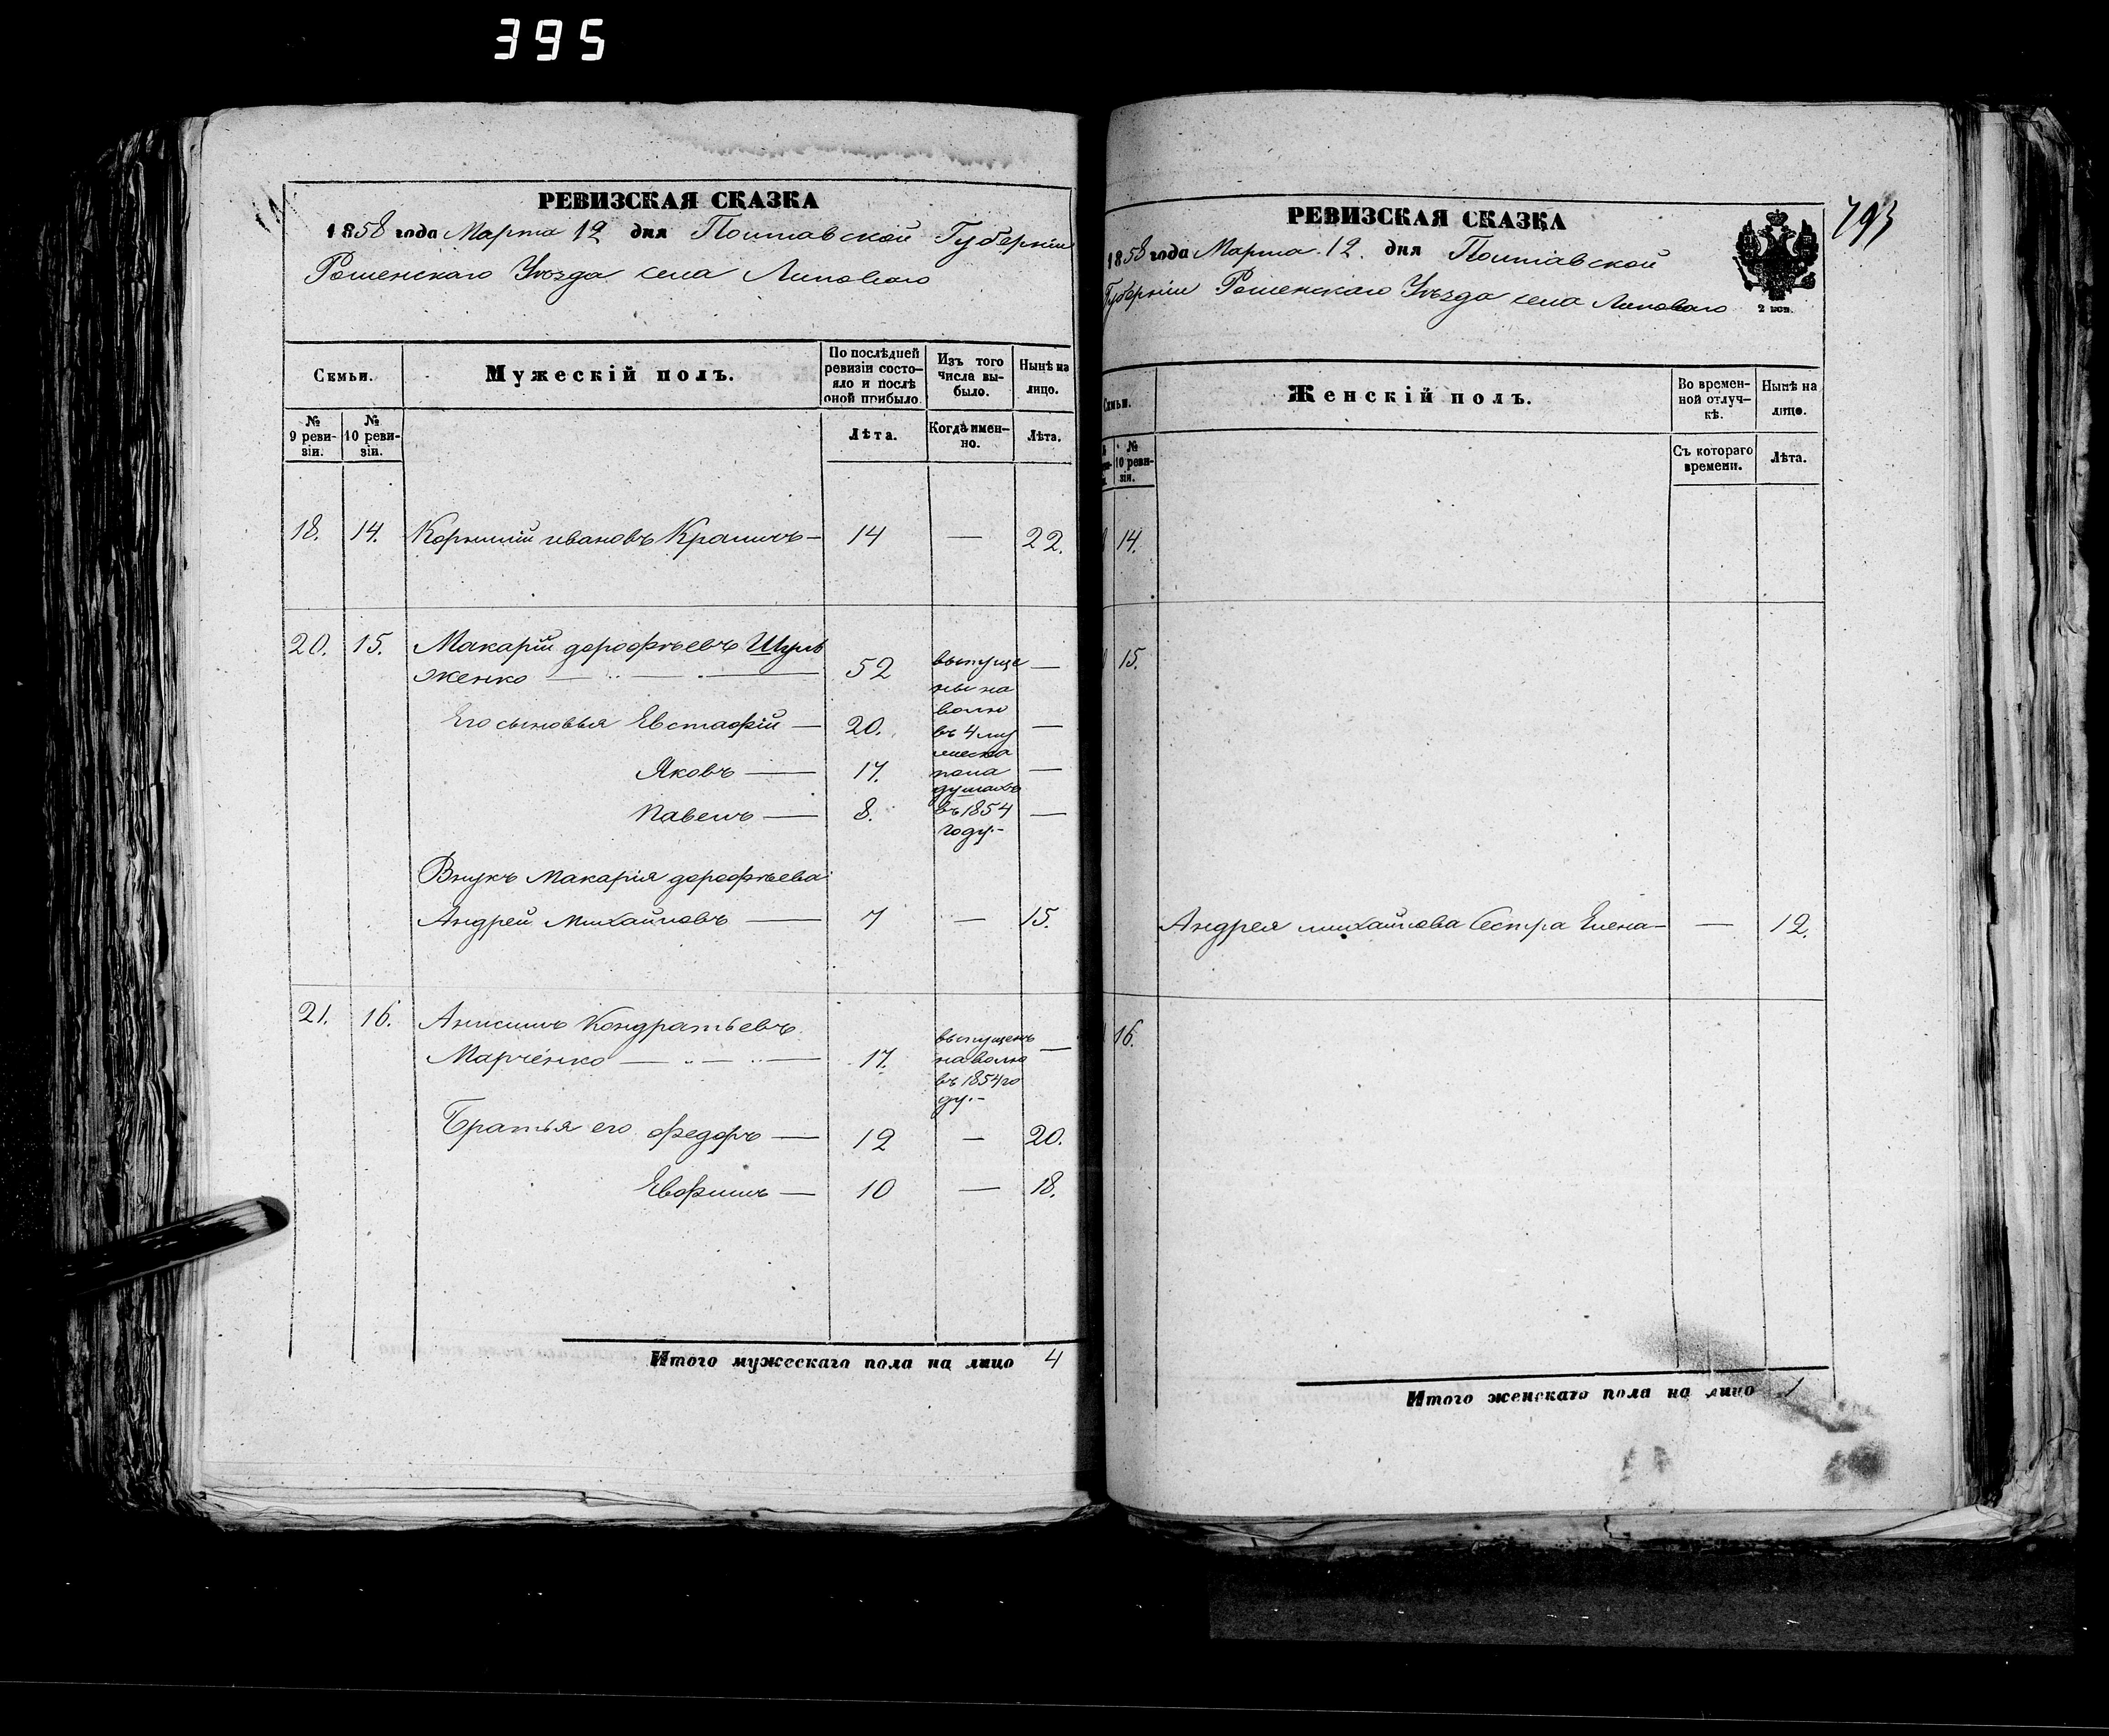 395
РЕВИЗСКАЯ СКАЗКА
1858 года Марта 12 дня Полтавской Губерніи
Роменскаго Уѣзда села Липоваго
Семьи.
Мужескій полъ.
По послѣдней
ревизіи состо-
яло и послѣ
оной прибыло.
Изъ того
числа вы-
было.
Нынѣ на
лицо.
№
9 реви-
зіи.
№
10 реви-
зіи.
Лѣта.
Когда имен-
но.
Лѣта.
18. 14. Корнилій ивановъ — 14 — 22.
20. 15. Макарій дорофѣевъ Шуль
женко — 52 —
Его сыновья Евстафій — 20. —
Яковъ — 17. —
Павелъ — 8. —
выпуще
ны на
волю
въ 4 му
жеска
пола
душахъ
въ 1854
году.-
Внукъ Макарія дорофѣева
Андрей Михайловъ — 7 — 15.
21. 16. Анисимъ Кондратьевъ
Марченко — 17. —
выпущенъ
на волю
въ 1854 го
ду.-
Братья его федоръ — 12 — 20.
Евфимъ — 10 — 18.
Итого мужескаго пола на лицо 4
793
РЕВИЗСКАЯ СКАЗКА
1858 года Марта 12. дня Полтавской
Губерніи Роменскаго Уѣзда села Липоваго
2 коп.
Семьи.
Женскій полъ.
Во времен-
ной отлуч-
кѣ.
Нынѣ на
лицо.
№
10 реви-
зіи.
Съ котораго
времени.
Лѣта.
14.
15.
Андрея михайлова Сестра Елена — — 12.
16.
Итого женскаго пола на лицо 1